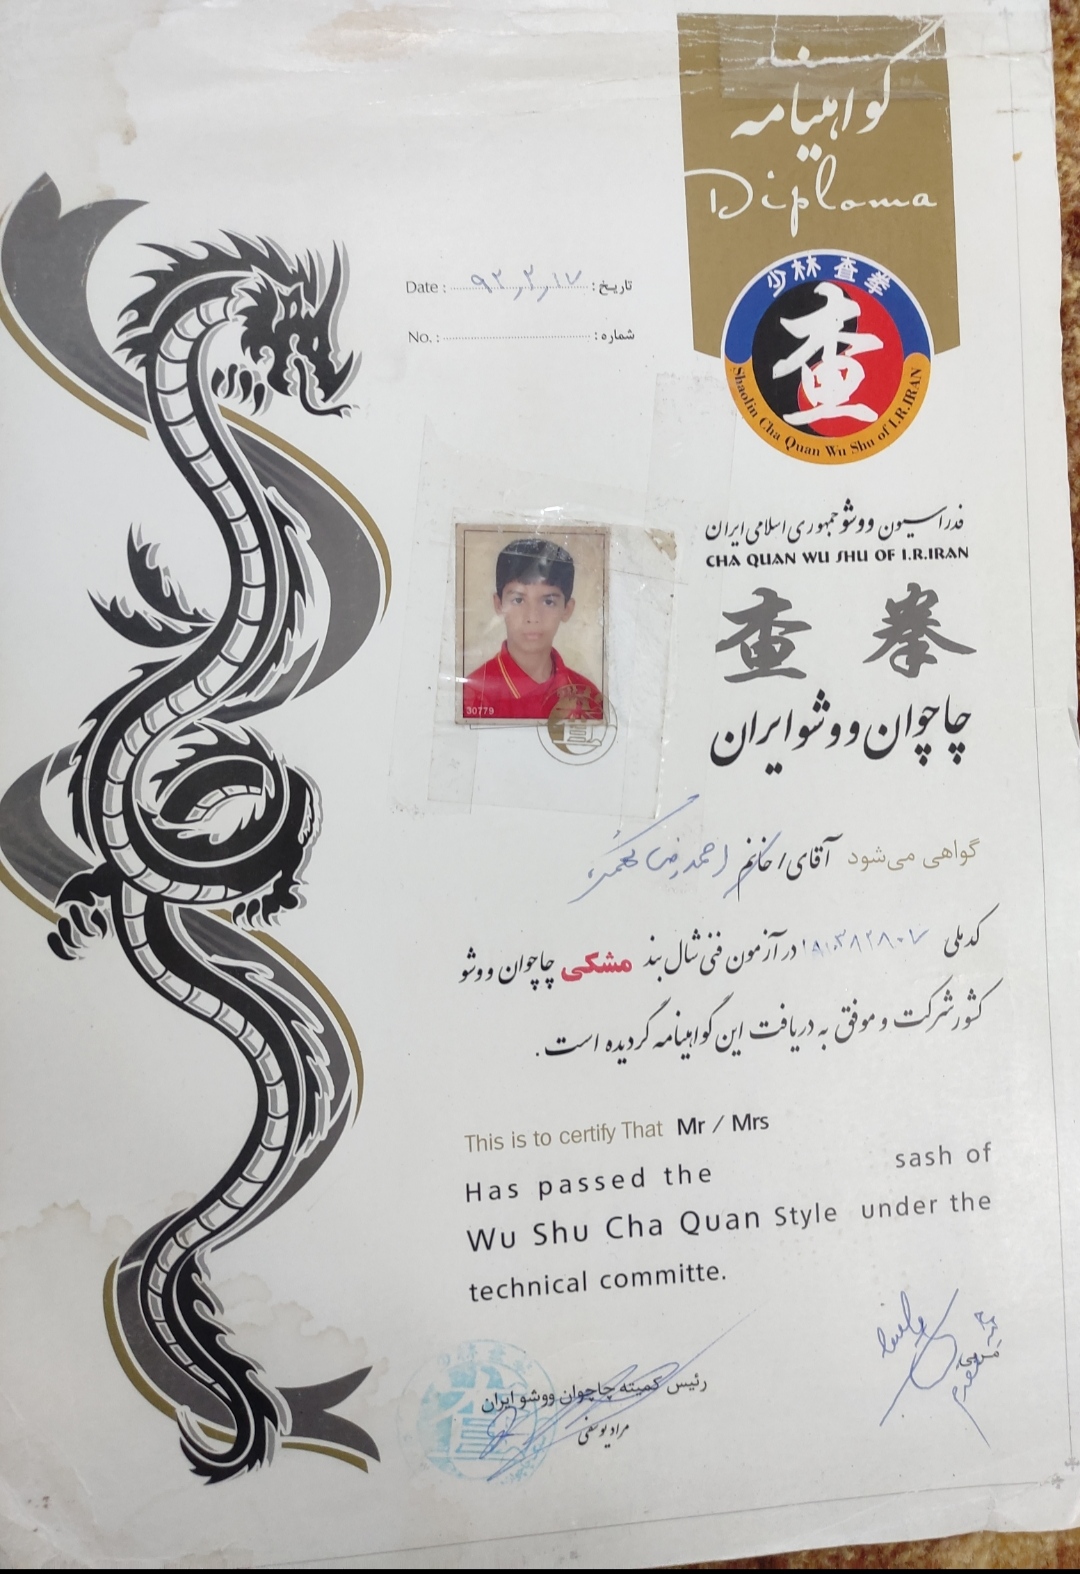 گواهینامه
Diploma
少林查拳
查
Shaolin Cha Quan Wu Shu of I.R.IRAN
تاریخ : ۹۲٫۲٫۱۷ Date :
شماره : No. :
فدراسیون ووشو جمهوری اسلامی ایران
CHA QUAN WU SHU OF I.R.IRAN
查 拳
چاچوان ووشو ایران
30779
گواهی می‌شود آقای/خانم احمدرضا
کد ملی در آزمون فنی شال بند مشکی چاچوان ووشو
کشور شرکت و موفق به دریافت این گواهینامه گردیده است .
This is to certify That Mr / Mrs
Has passed the sash of
Wu Shu Cha Quan Style under the
technical committe.
رئیس کمیته چاچوان ووشو ایران
مراد یوسفی